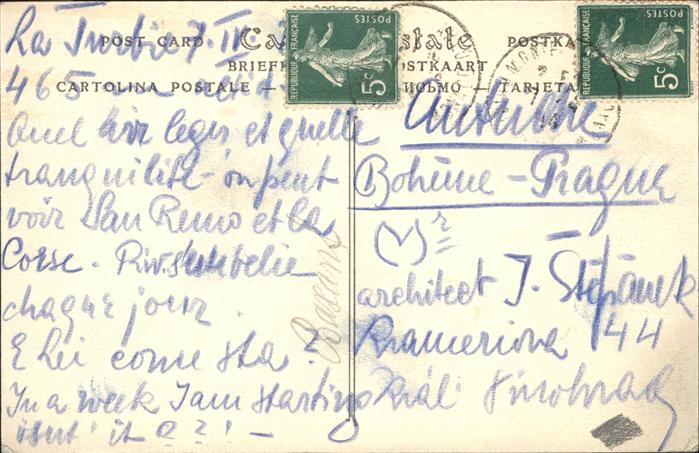 La Turbie 7 IV
POST CARD
POSTKA
BRIEFK
OSTKAART
CARTOLINA POSTALE
TARJETA
REPUBLIQUE FRANÇAISE
POSTES
5c
REPUBLIQUE FRANÇAISE
POSTES
5c
465
Quel air leger et quelle
tranquilité - on peut
voir San Remo et la
Corse.
chaque jour.
E Lei come sta?
In a week I am starting
isnt' it
Autriche
Bohême - Prague
architect J. Štěpánek
Krameriova 44
Král Vinohrady